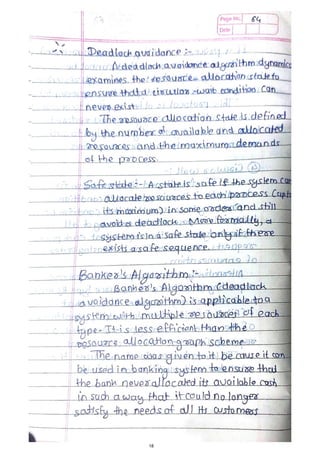 Page No. 64
Date
Deadlock avoidance :-
A deadlock avoidance algorithm dynamics
examines the resource allocation state to
ensure that a circular wait condition can
never exist
The resource allocation state is defined
by the number of available and allocated
resources and the maximum demands
of the process.
Safe state :- A state is safe if the system can
allocate resources to each process (upto
its maximum) in some order and still
avoid a deadlock. More formally, a
system is in a safe state only if there
exists a safe sequence.
Banker's Algorithm :-
Banker's Algorithm (deadlock
avoidance algorithm) is applicable to a
system with multiple resources of each
type. It is less efficient than the
resource allocation graph scheme
The name was given to it because it can
be used in banking system to ensure that
the bank never allocated its available cash
in such a way that it could no longer
satisfy the needs of all its customers